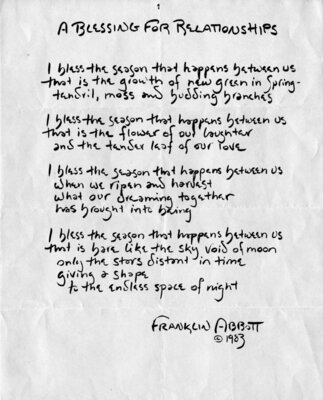 A BLESSING FOR RELATIONSHIPS
I bless the season that happens between us
that is the growth of new green in Spring-
tendril, moss and budding branches
I bless the season that happens between us
that is the flower of our laughter
and the tender leaf of our love
I bless the season that happens between us
when we ripen and harvest
what our dreaming together
has brought into being
I bless the season that happens between us
that is bare like the sky void of moon
only the stars distant in time
giving a shape
to the endless space of night
FRANKLIN ABBOTT
© 1983